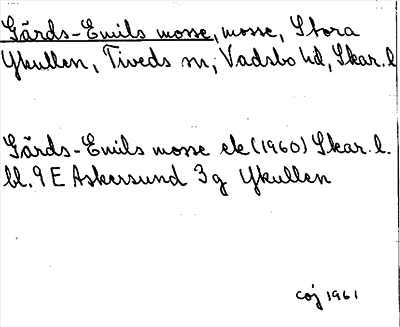 Gärds-Emils mosse, mosse, Stora
Ykullen, Tiveds sn, Vadsbo hd, Skar. l
Gärds-Emils mosse ek (1960) Skar. l.
bl. 9 E Askersund 3 g Ykullen
coj 1961